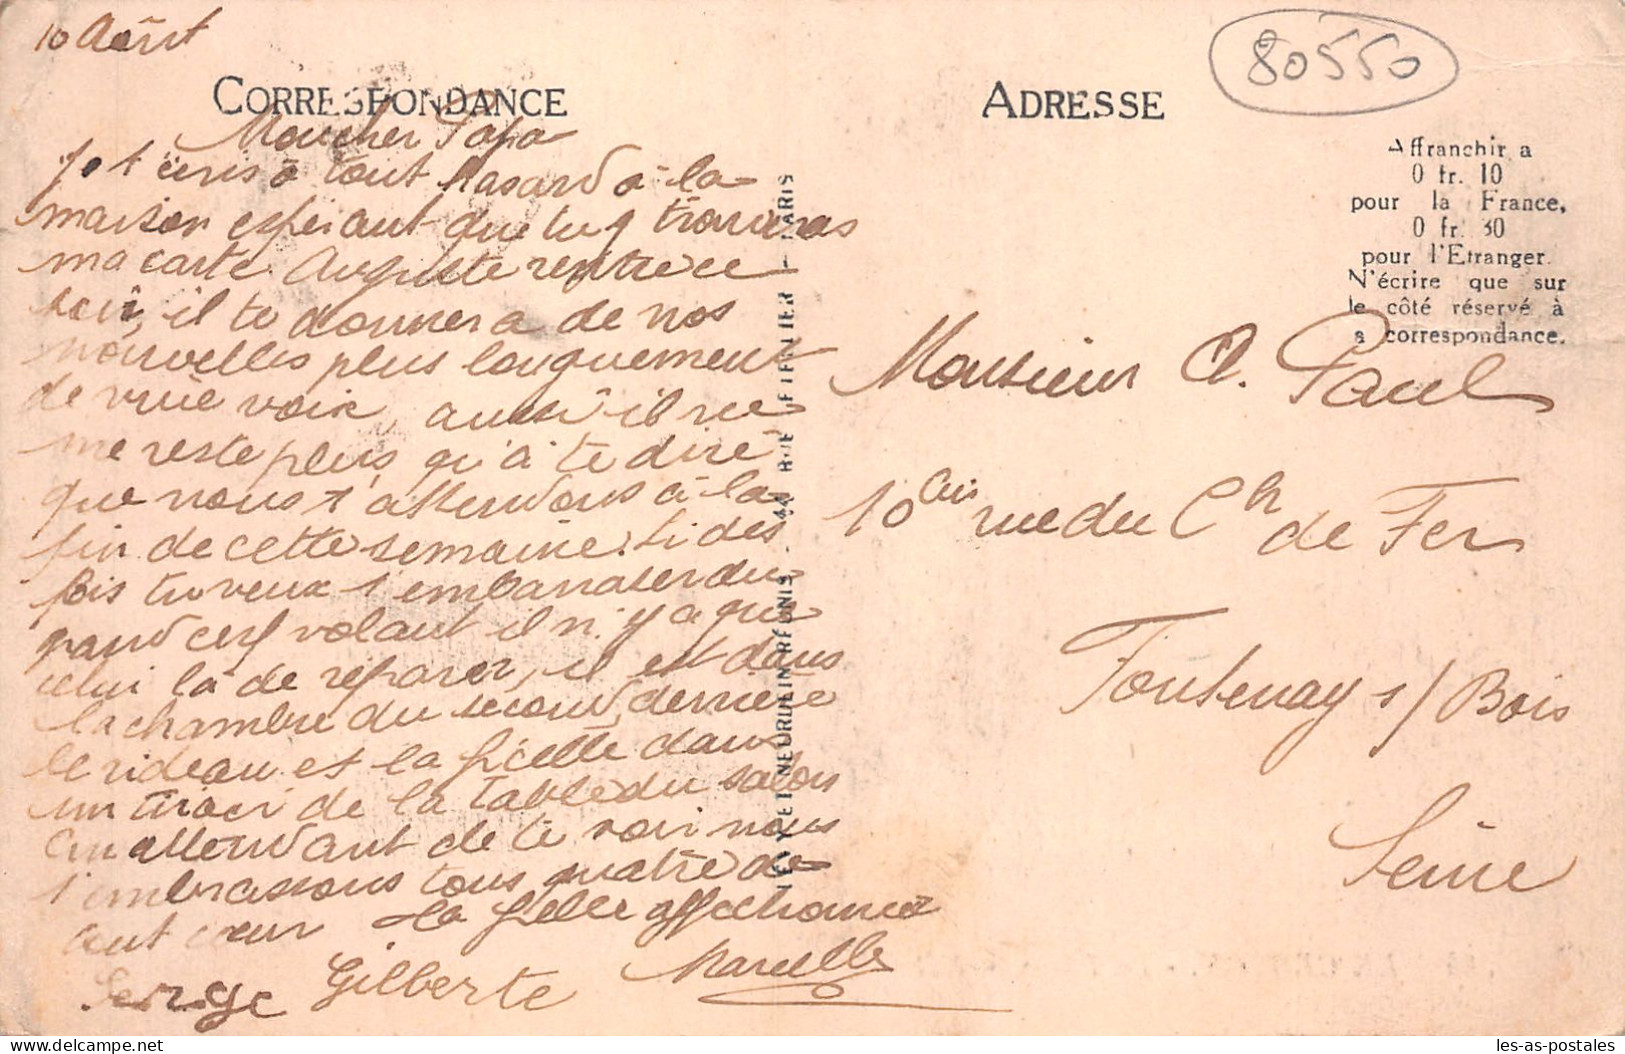 10 Août
80550
CORRESPONDANCE
ADRESSE
Mon cher Papa
Je t'écris à tout hasard à la
maison espérant que tu y trouveras
ma carte. Auguste rentre ce
soir, il te donnera de nos
nouvelles plus longuement
de vive voix, aussi il ne
me reste plus qu'à te dire
que nous t'attendons à la
fin de cette semaine. Si des
fois tu veux t'embarrasser du
grand cerf volant il n'y a que
celui là de réparer, il est dans
la chambre du second, derrière
le rideau et la ficelle dans
un tiroir de la table du salon
En attendant de te voir nous
t'embrassons tous quatre de
tout cœur Ta fille affectionnée
Serge Gilberte Marcelle
LEVY ET NEURDEIN RÉUNIS - 44 RUE LETELLIER - PARIS
Affranchir a
0 fr. 10
pour la France,
0 fr. 30
pour l'Etranger.
N'écrire que sur
le côté réservé à
a correspondance.
Monsieur A. Paul
10 bis rue du Ch de Fer
Fontenay s/ Bois
Seine
les-as-postales
www.delcampe.net